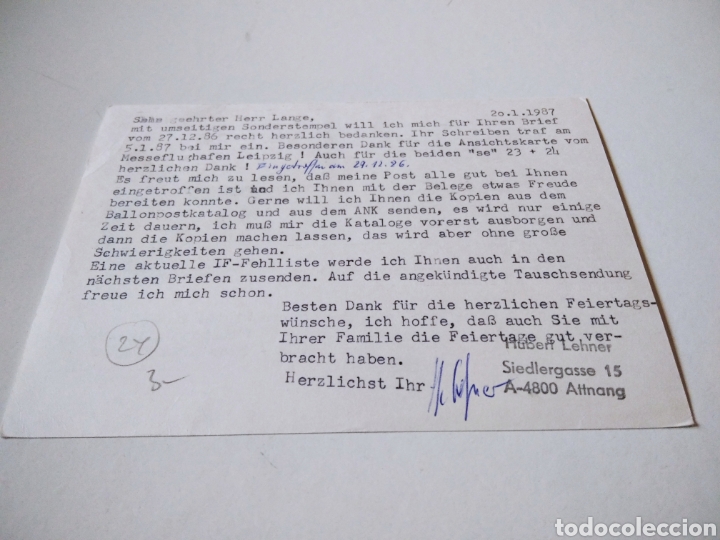 20.1.1987
Sehr geehrter Herr Lange,
mit umseitigen Sonderstempel will ich mich für Ihren Brief
vom 27.12.86 recht herzlich bedanken. Ihr Schreiben traf am
5.1.87 bei mir ein. Besonderen Dank für die Ansichtskarte vom
Messeflughafen Leipzig ! Auch für die beiden "se" 23 + 24
herzlichen Dank ! Eingetroffen am
Es freut mich zu lesen, daß meine Post alle gut bei Ihnen
eingetroffen ist und ich Ihnen mit der Belege etwas Freude
bereiten konnte. Gerne will ich Ihnen die Kopien aus dem
Ballonpostkatalog und aus dem ANK senden, es wird nur einige
Zeit dauern, ich muß mir die Kataloge vorerst ausborgen und
dann die Kopien machen lassen, das wird aber ohne große
Schwierigkeiten gehen.
Eine aktuelle IF-Fehlliste werde ich Ihnen auch in den
nächsten Briefen zusenden. Auf die angekündigte Tauschsendung
freue ich mich schon.
Besten Dank für die herzlichen Feiertags-
wünsche, ich hoffe, daß auch Sie mit
Ihrer Familie die Feiertage gut ver-
bracht haben.
Herzlichst Ihr
Hubert Lehner
Siedlergasse 15
A-4800 Attnang
24
3-
todocoleccion